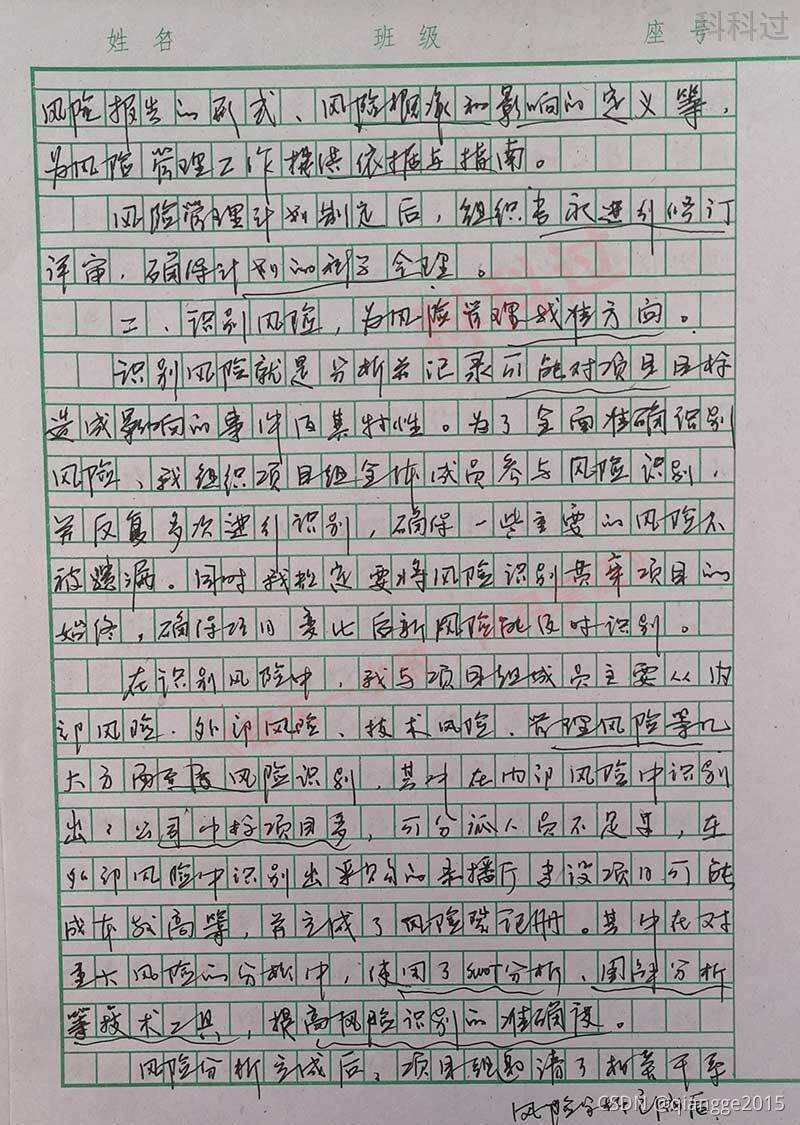 科科过
姓名 班级 座号
风险报告的形式、风险概率和影响的定义等，
为风险管理工作提供依据与指南。
风险管理计划制定后，组织专家进行修订
评审，确保计划的科学合理。
二、识别风险，为风险管理找准方向。
识别风险就是分析并记录可能对项目目标
造成影响的事件及其特性。为了全面准确识别
风险、我组织项目组全体成员参与风险识别，
并反复多次进行识别，确保一些主要的风险不
被遗漏。同时我规定要将风险识别贯穿项目的
始终，确保项目变化后新风险能及时识别。
在识别风险中，我与项目组成员主要从内
部风险、外部风险、技术风险、管理风险等几
大方面风险识别，其中在内部风险中识别
出：公司中标项目多，可分派人员不足，在
外部风险中识别出采购的录播厅建设项目可能
成本较高等，并完成了风险登记册。其中在对
重大风险的分析中，使用了SWOT分析、图解分析
等技术工具，提高风险识别的准确度。
风险分析完成后，项目组邀请了相关干系
风险
CSDN @qiangge2015